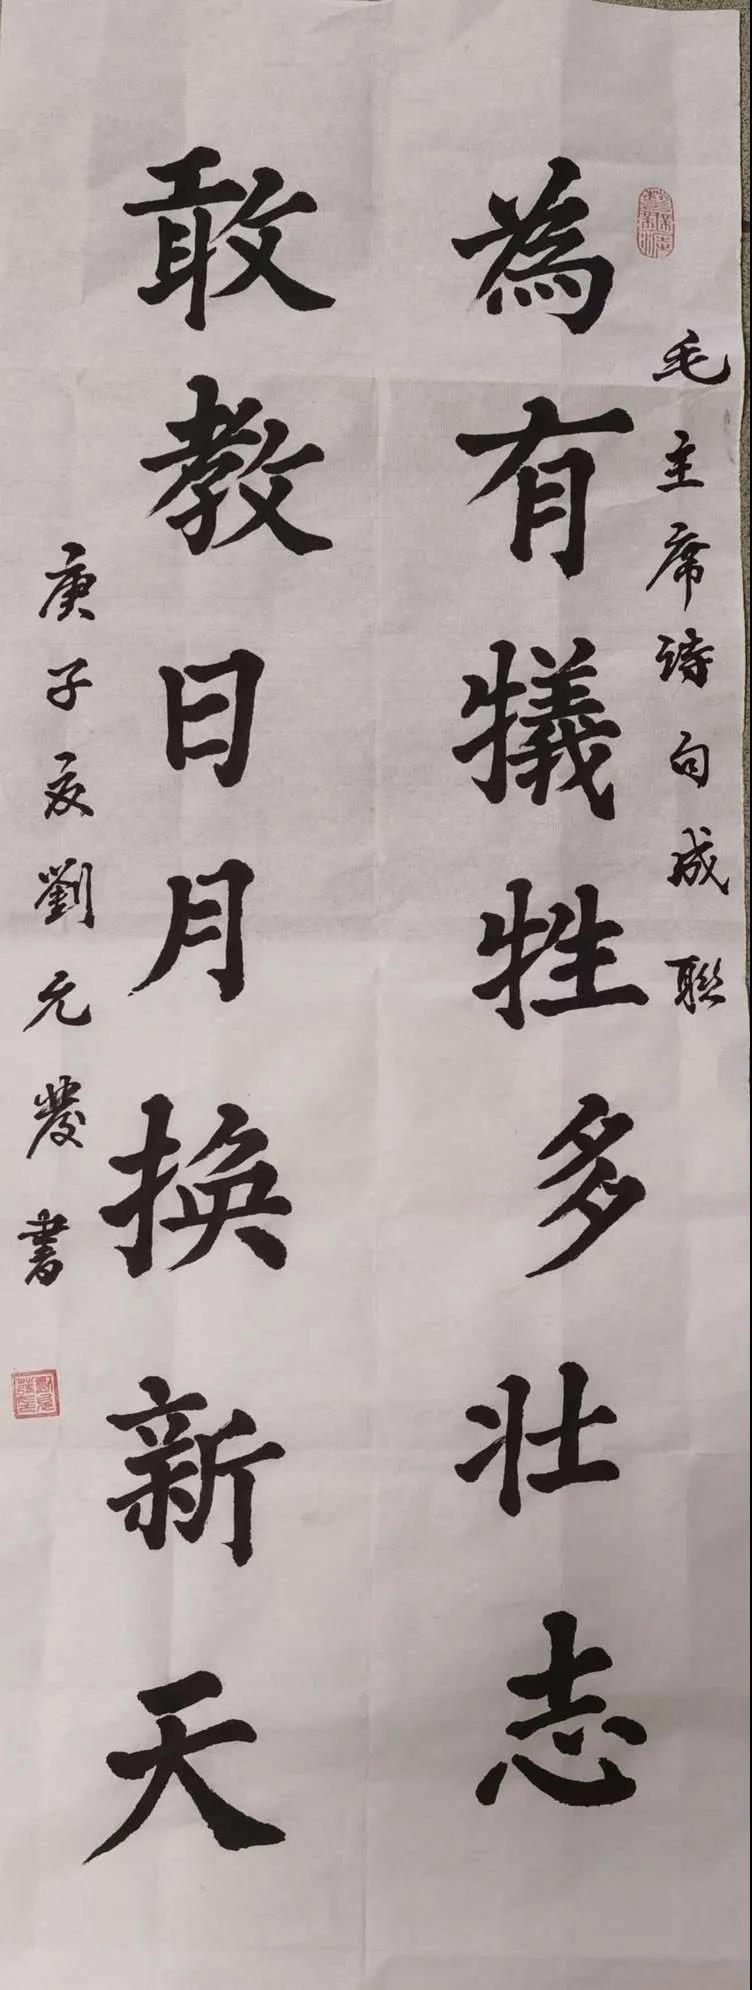 毛主席詩句成聯
為有犧牲多壯志
敢教日月換新天
庚子夜劉元發書